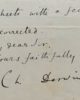 sheets with a few
corrected.
my dear Sir,
yours faithfully
Ch. Darwin